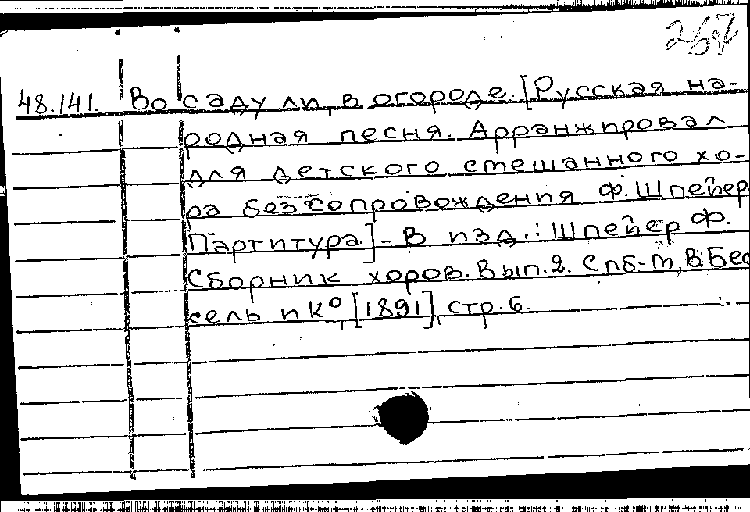 267
48.141. Во саду ли, в огороде. [Русская на-
родная песня. Арранжировал
для детского смешанного хо-
ра без сопровождения Ф. Шпейер
Партитура.] - В изд.: Шпейер Ф.
Сборник хоров. Вып. 2. СПб-М, В. Бес
сель и К° [1891], стр. 6.